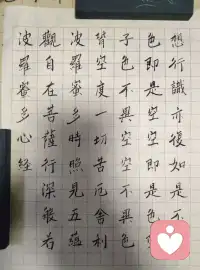 波羅蜜多心經
觀自在菩薩行深般若
波羅蜜多時照見五蘊
皆空度一切苦厄舍利
子色不異空空不異色
色即是空空即是
想行識亦復如是